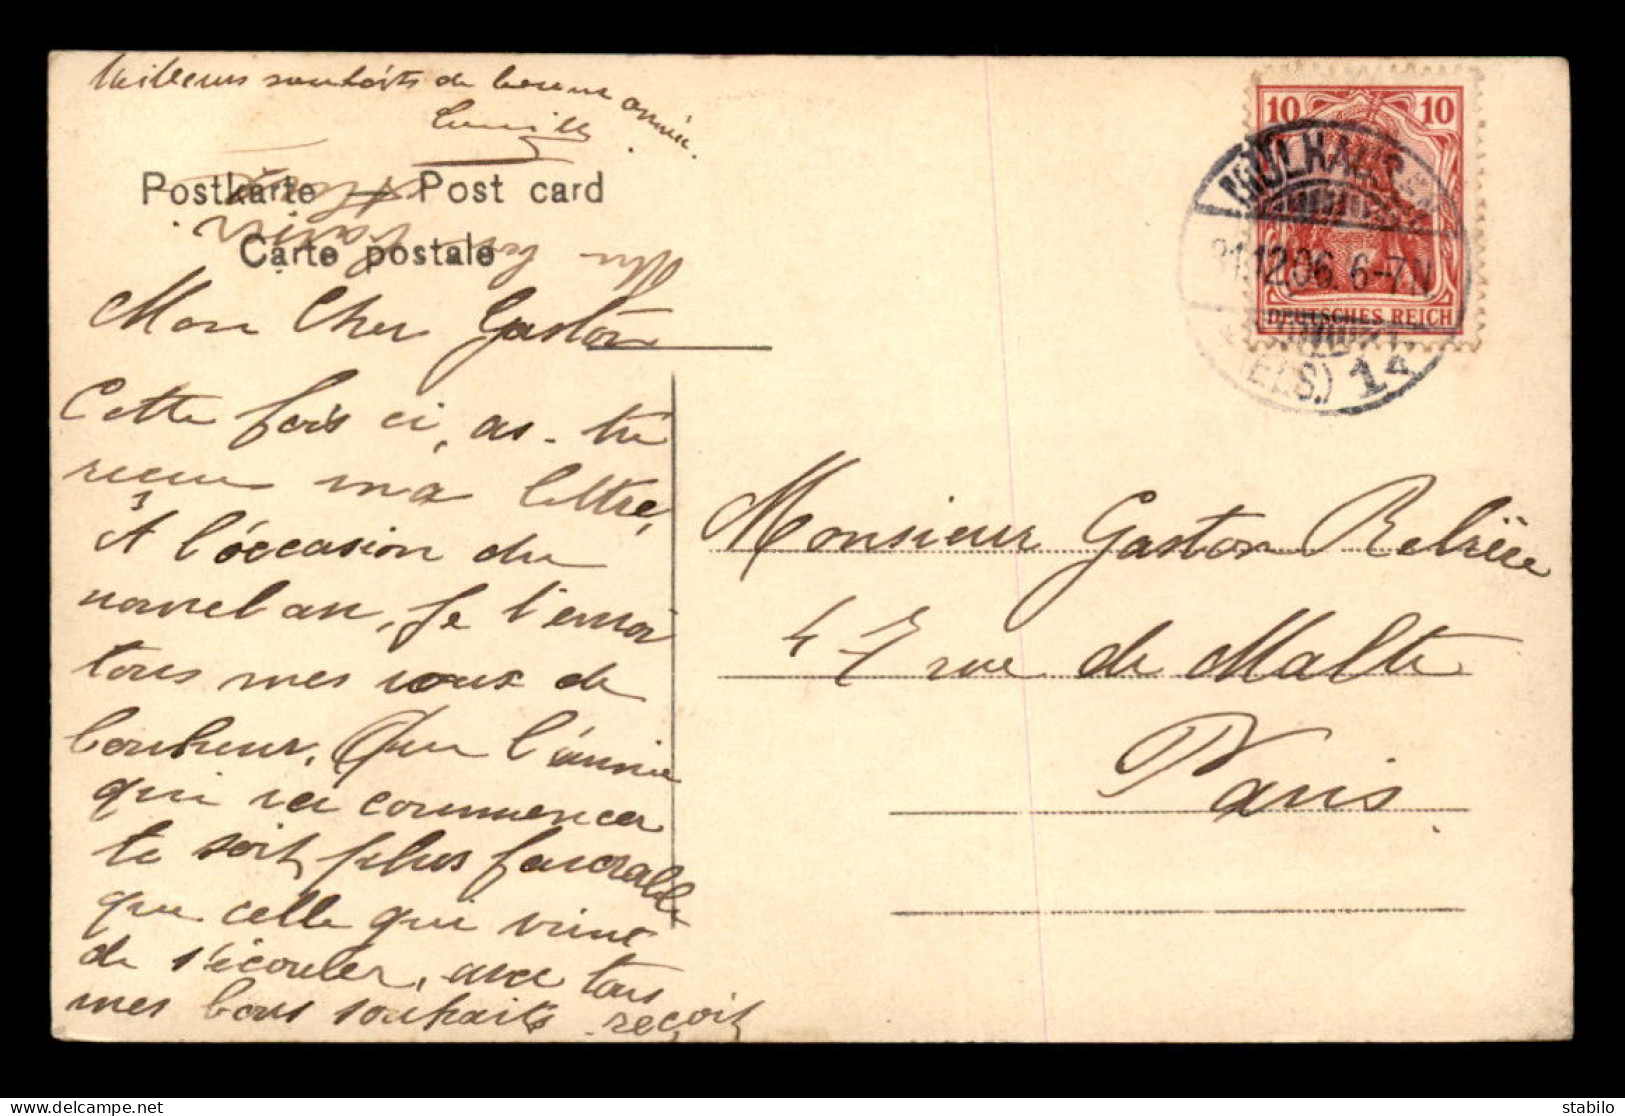 Meilleurs souhaits de bonne année.
Camille
Postkarte — Post card
Carte postale
un bon baiser
Mon Cher Gaston
Cette fois ci, as-tu
reçue ma lettre,
A l'occasion du
nouvel an, je t'envoi
tous mes voeux de
bonheur. Que l'année
qui va commencer
te soit plus favorable
que celle qui vient
de s'écouler, avec tous
mes bons souhaits reçoit
10 10
DEUTSCHES REICH
MÜLHAUSEN
31.12.06. 6-7N
(ELS.) 1
Monsieur Gaston
47 rue de Malte
Paris
stabilo
delcampe.net